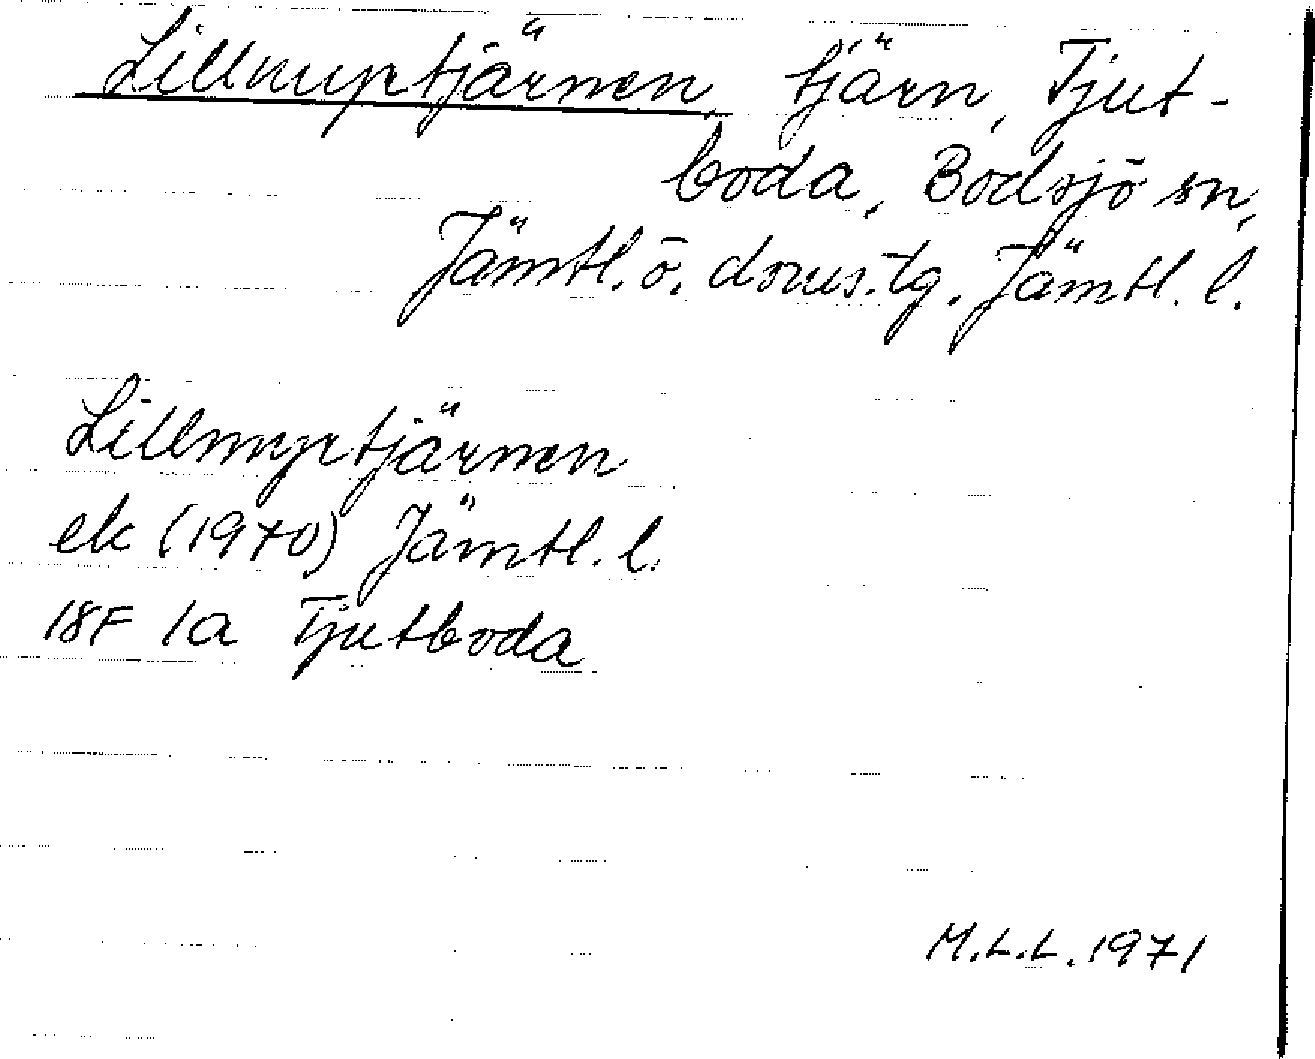 Lillmyrtjärnen, tjärn, Tjut-
boda, Bodsjö sn,
Jämtl. ö. doms.tg. Jämtl. l.
Lillmyrtjärnen
ek (1970) Jämtl. l.
18F 1a Tjutboda
M.L.L. 1971